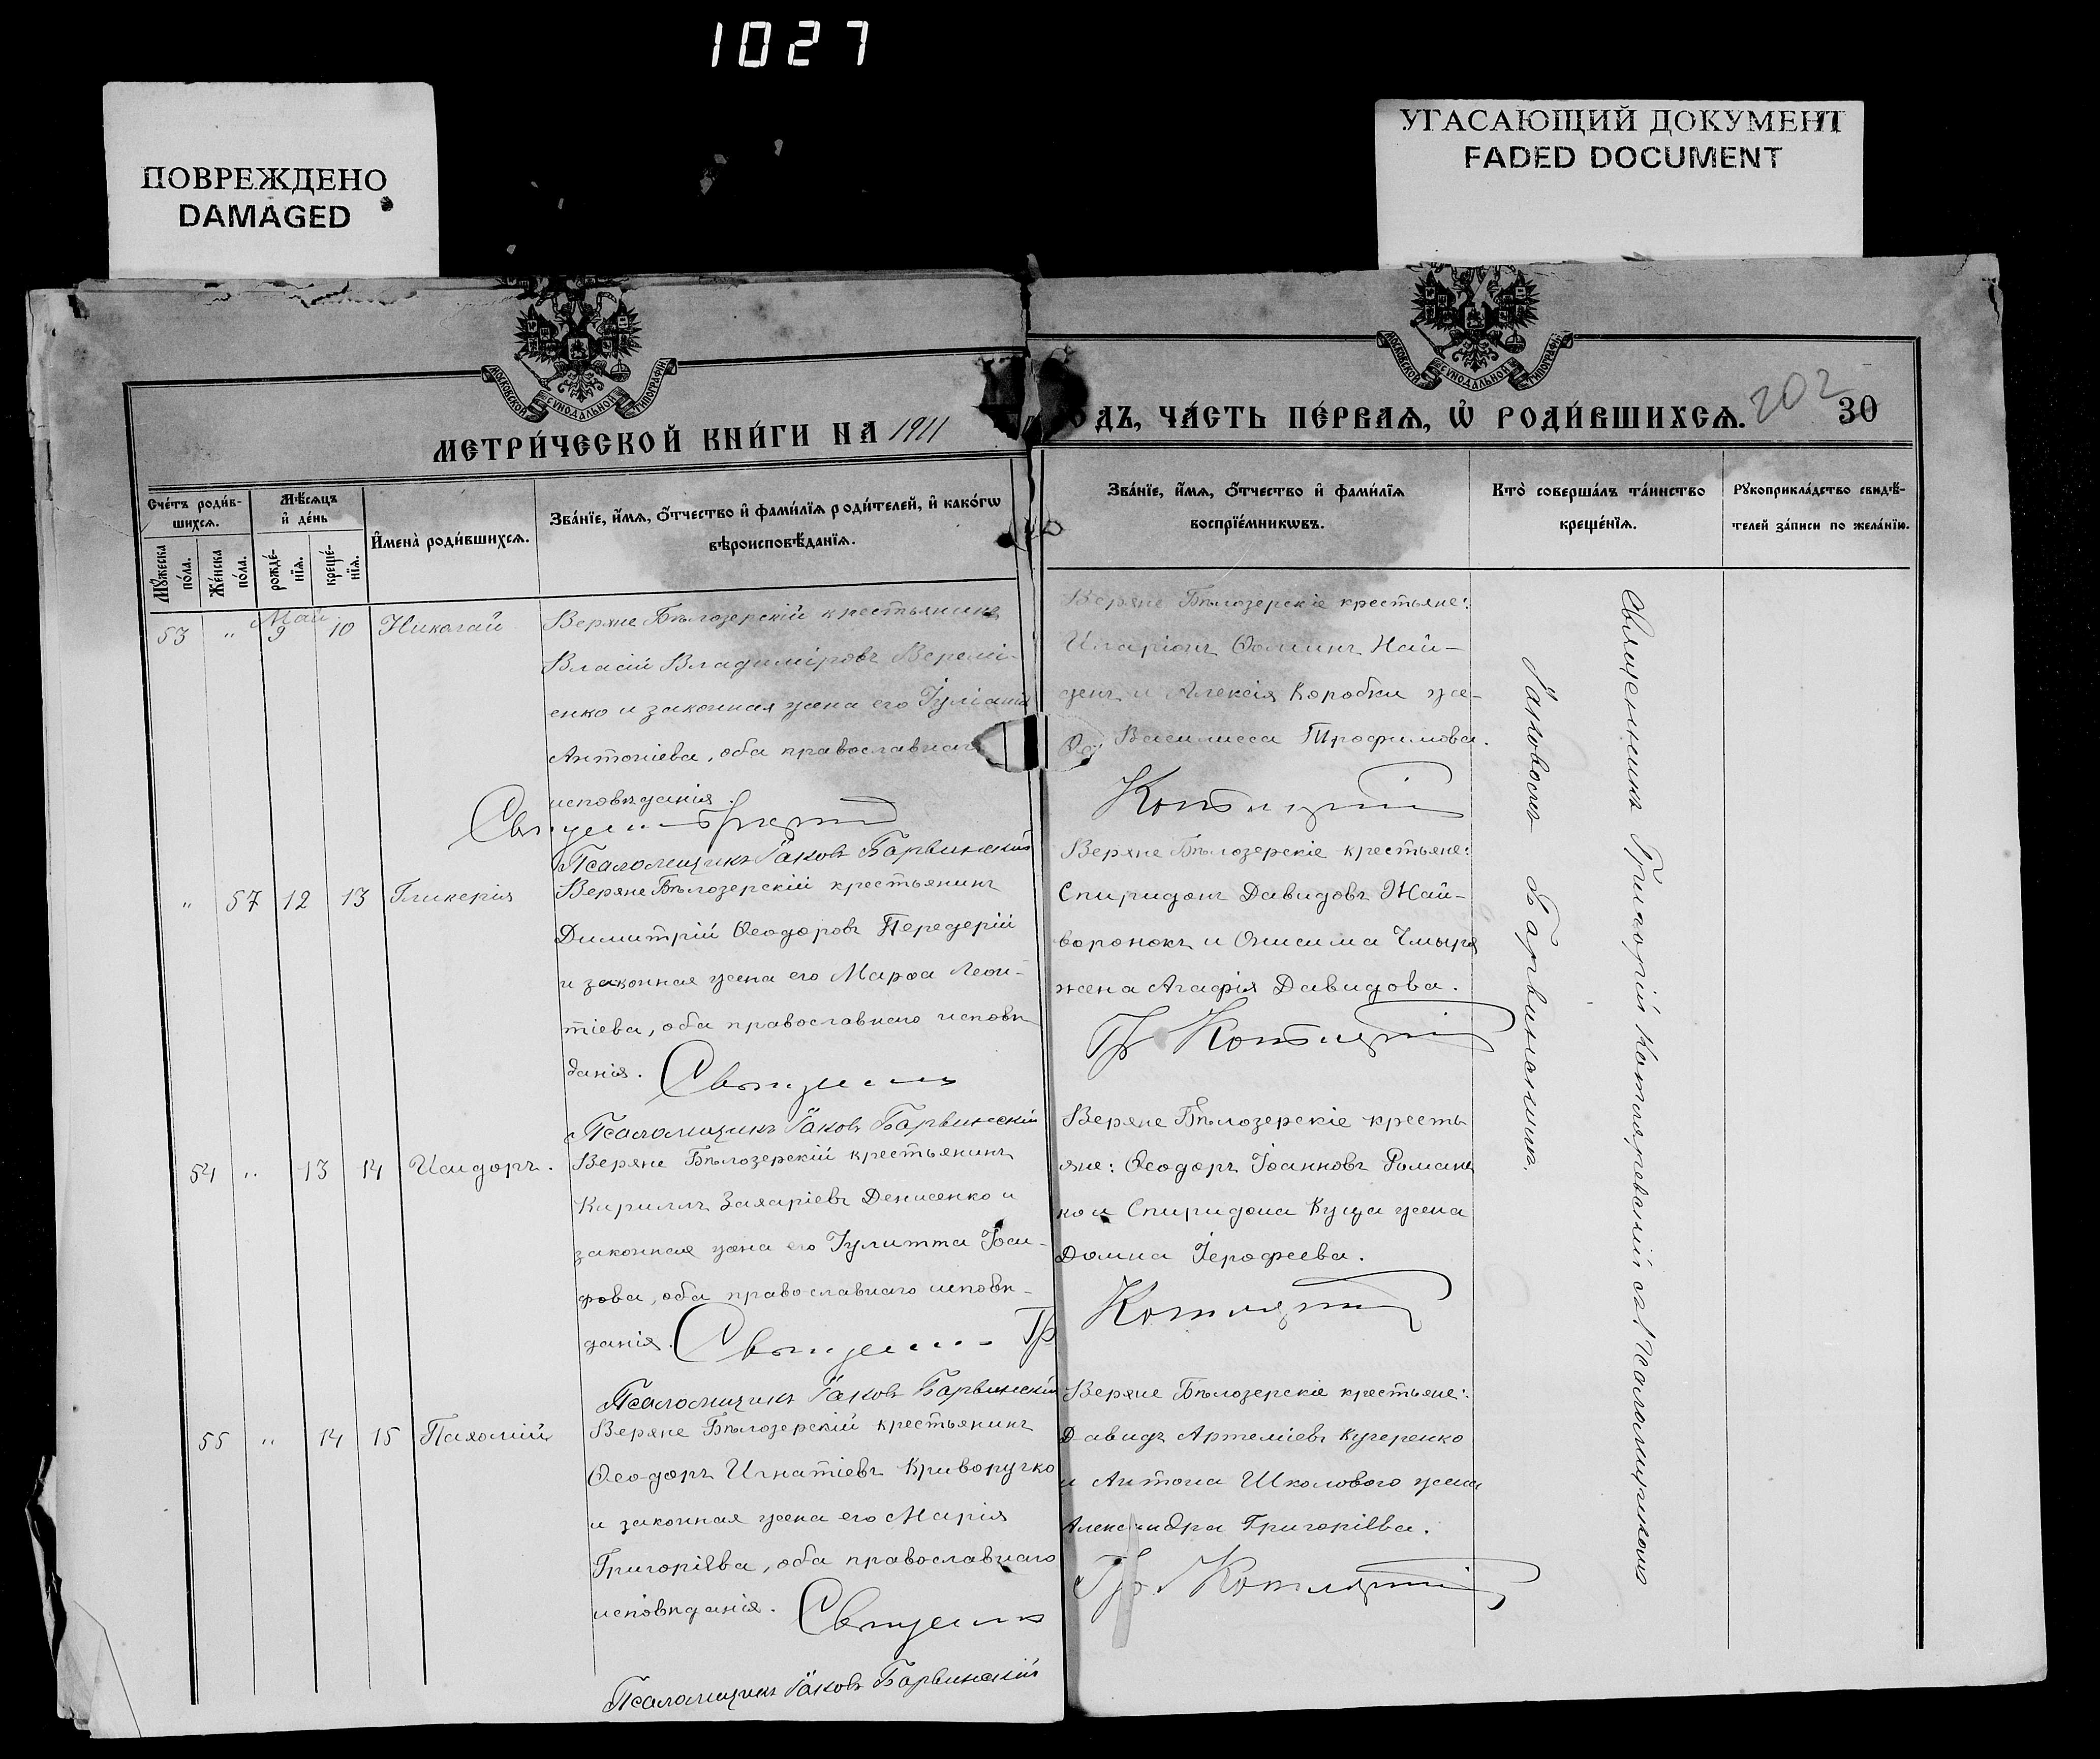 1027
ПОВРЕЖДЕНО
DAMAGED
УГАСАЮЩИЙ ДОКУМЕНТ
FADED DOCUMENT
МОСКОВСКОЙ СѴНОДАЛЬНОЙ ТИПОГРАФІИ
МОСКОВСКОЙ СѴНОДАЛЬНОЙ ТИПОГРАФІИ
МЕТРИ́ЧЕСКОЙ КНИ́ГИ НА 1911
ОДЪ, ЧА́СТЬ ПЕ́РВАѦ, Ѽ РОДИ́ВШИХСѦ. 202 30
Сче́тъ роди́в-
шихсѧ.
Мѣ́сѧцъ
и҆ де́нь
Мꙋ́жеска по́ла.
Же́нска по́ла.
рожде́-
нїѧ.
креще́-
нїѧ.
И҆мена̀ роди́вшихсѧ.
Зва́нїе, и҆́мѧ, ѻ҆́тчество и҆ фами́лїѧ роди́телей, и҆ како́гѡ
вѣроисповѣ́данїѧ.
Зва́нїе, и҆́мѧ, ѻ҆́тчество и҆ фами́лїѧ
воспрїе́мникѡвъ.
Кто̀ соверша́лъ та́инство
креще́нїѧ.
Рꙋкоприкла́дство свидѣ́-
телей за́писи по жела́нїю.
Май
53 " 9 10 Николай
Веряне Бѣлозерскій крестьянинъ
Власій Владиміровъ Веремі-
енко и законная жена его Іуліанія
Антоніева, оба православнаго
исповѣданія.
Псаломщикъ Іаковъ Барвинскій
Веряне Бѣлозерскіе крестьяне:
Иларіонъ Ѳоминъ Най-
денъ и Алексія Коробки же-
на Василисса Трофимова.
Котляревскій
" 57 12 13 Гликерія
Веряне Бѣлозерскій крестьянинъ
Димитрій Ѳеодоровъ Передерій
и законная жена его Марѳа Леон-
тіева, оба православнаго исповѣ
данія. Священникъ
Псаломщикъ Іаковъ Барвинскій
Веряне Бѣлозерскіе крестьяне:
Спиридонъ Давидовъ Жай-
воронокъ и Онисима Чмыря
жена Агафія Давидова.
Гр Котляревскій
54 " 13 14 Исидоръ.
Веряне Бѣлозерскій крестьянинъ
Кириллъ Захаріевъ Денисенко и
законная жена его Іулитта Іоси-
фова, оба православнаго исповѣ-
данія. Священникъ Гр
Псаломщикъ Іаковъ Барвинскій
Веряне Бѣлозерскіе кресть
яне: Ѳеодоръ Іоанновъ Романен
ко и Спиридона Куща жена
Домна Іерофеева.
Котляревскій
55 " 14 15 Пахомій
Веряне Бѣлозерскій крестьянинъ
Ѳеодоръ Игнатіевъ Криворучко
и законная жена его Марія
Григоріева, оба православнаго
исповѣданія. Священникъ
Псаломщикъ Іаковъ Барвинскій
Веряне Бѣлозерскіе крестьяне:
Давидъ Артеміевъ Кучеренко
и Антона Школового жена
Александра Григоріева.
Гр. Котляревскій
Священникъ Григорій Котляревскій съ псаломщикомъ
Іаковомъ Барвинскимъ.